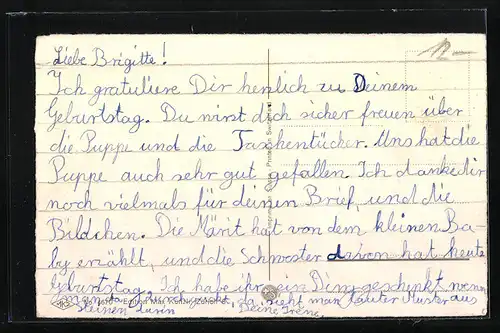 Liebe Brigitte!
12.-
Ich gratuliere Dir herzlich zu Deinem
Geburtstag. Du wirst dich sicher freuen über
die Puppe und die Taschentücher. Uns hat die
Puppe auch sehr gut gefallen. Ich danke dir
noch vielmals für deinen Brief, und die
Bildchen. Die Märit hat von dem kleinen Ba-
by erzählt, und die Schwester davon hat heute
Geburtstag. Ich habe ihr ein Ding geschenkt, wenn
man da sieht man lauter Muster aus
Steinen darin
Deine Irene.